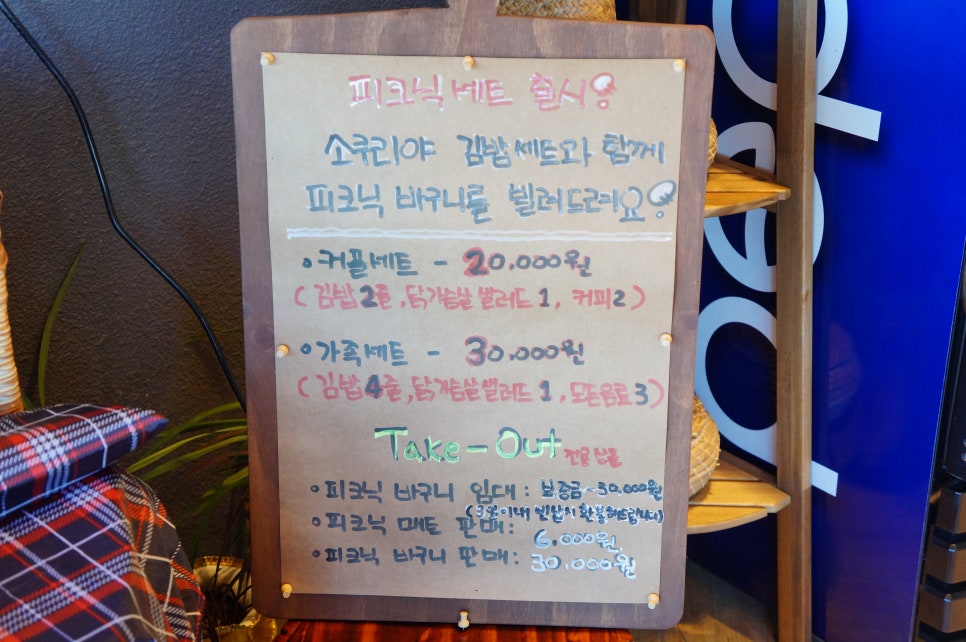 피크닉 세트 출시!
소쿠리야 김밥세트와 함께
피크닉 바구니를 빌려드려요!
• 커플세트 - 20,000원
( 김밥 2줄, 닭가슴살 샐러드 1, 커피 2 )
• 가족세트 - 30,000원
( 김밥 4줄, 닭가슴살 샐러드 1, 모든음료 3 )
Take-Out 전용상품
• 피크닉 바구니 임대 : 보증금 - 30,000원
(3일이내 반납시 환불해드립니다)
• 피크닉 매트 판매: 6,000원
• 피크닉 바구니 판매: 30,000원